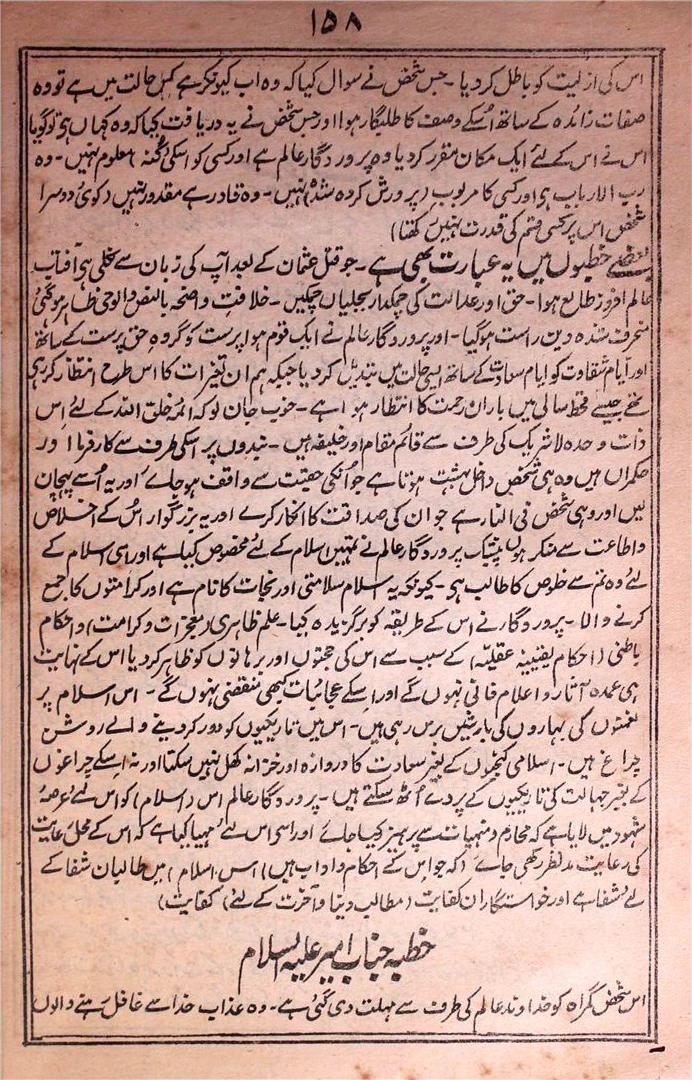 ۱۵۸
اس کی ازلیت کو باطل کر دیا ۔ جس شخص نے سوال کیا کہ وہ اب کیونکر ہے کس حالت میں ہے تو وہ
صفات زائدہ کے ساتھ اُسکے وصف کا طلبگار ہوا اور جس شخص نے یہ دریافت کیا کہ وہ کہاں ہی تو گویا
اس نے اس کے لئے ایک مکان مقرر کر دیا وہ پروردگار عالم ہے اور کسی کو اسکی کُنہ معلوم نہیں ۔ وہ
رب الارباب ہی اور کسی کا مربوب (پرورش کردہ شدہ) نہیں ۔ وہ قادر ہے مقدور نہیں (کوئی دوسرا
شخص اس پر کسی قسم کی قدرت نہیں رکھتا)
بعضے خطبوں میں یہ عبارت بھی ہے ۔ جو قتل عثمان کے بعد آپ کی زبان سے نکلی ہی آفتاب
عالم افروز طالع ہوا ۔ حق اور عدالت کی چمکدار بجلیاں چمکیں ۔ خلافت واضحہ بالنص والوحی ظاہر ہو گئی
منحرف شدہ دین راست ہوگیا ۔ اور پروردگار عالم نے ایک قوم ہوا پرست کو گروہِ حق پرست کے ساتھ
اور ایام شقاوت کو ایام سعادت کے ساتھ ایسی حالت میں تبدیل کر دیا جبکہ ہم ان تغیرات کا اس طرح انتظار کر رہی
تھے جیسے قحط سالی میں باران رحمت کا انتظار ہوا ہے ۔ خوب جان لو کہ ائمہ خلق اللہ کے لئے اس
ذات وحدہ لاشریک کی طرف سے قائم مقام اور خلیفہ ہیں ۔ بندوں پر اسکی طرف سے کارفرما اور
حکمراں ہیں وہ ہی شخص داخل بہشت ہوتا ہے جو اُنکی حقیت سے واقف ہو جاے اور یہ اُسے پہچان
لیں اور وہی شخص فی النار ہے جو ان کی صداقت کا انکار کرے اور یہ بزرگوار اُس کے اخلاص
واطاعت سے منکر ہوں بیشک پروردگار عالم نے تمہیں اسلام کے لئے مخصوص کیا ہے اور اسی اسلام کے
لئے وہ تم سے خلوص کا طالب ہی ۔ کیونکہ یہ اسلام سلامتی اور نجات کا نام ہے اور کرامتوں کا جمع
کرنے والا ۔ پروردگار نے اس کے طریقہ کو برگزیدہ کیا ۔ علم ظاہری (معجزات وکرامت) و احکام
باطنی (احکام یقینیۂ عقلیّہ) کے سبب سے اس کی حجتوں اور برہانوں کو ظاہر کر دیا اس کے نہایت
ہی عمدہ آثار و اعلام فانی نہوں گے اور اسکے عجائبات کبھی منقضی نہوں گے ۔ اس اسلام پر
نعمتوں کی بہاروں کی بارشیں برس رہی ہیں ۔ اس میں تاریکیوں کو دور کر دینے والے روشن
چراغ ہیں ۔ اسلامی کنجیوں کے بغیر سعادت کا دروازہ اور خزانہ کھل نہیں سکتا اور نہ اسکے چراغوں
کے بغیر جہالت کی تاریکیوں کے پردے اُٹھ سکتے ہیں ۔ پروردگار عالم اس (اسلام) کو اس لئے عرصۂ
شہود میں لایا ہے کہ محارم و منہیات سے پرہیز کیا جائے اور اسی اس لئے مہیا کیا ہے کہ اس کے محل رعایت
کی رعایت مدنظر رکھی جاے (کہ جو اس کے احکام و اداب ہیں) اس (اسلام) میں طالبان شفا کے
لئے شفا ہے اور خواستگاران کفایت (مطالب دنیا و آخرت کے لئے) کفایت)
خطبہ جناب امیر علیہ السلام
اس شخص گمراہ کو خداوند عالم کی طرف سے مہلت دی گئی ہے ۔ وہ عذاب خدا سے غافل رہنے والوں